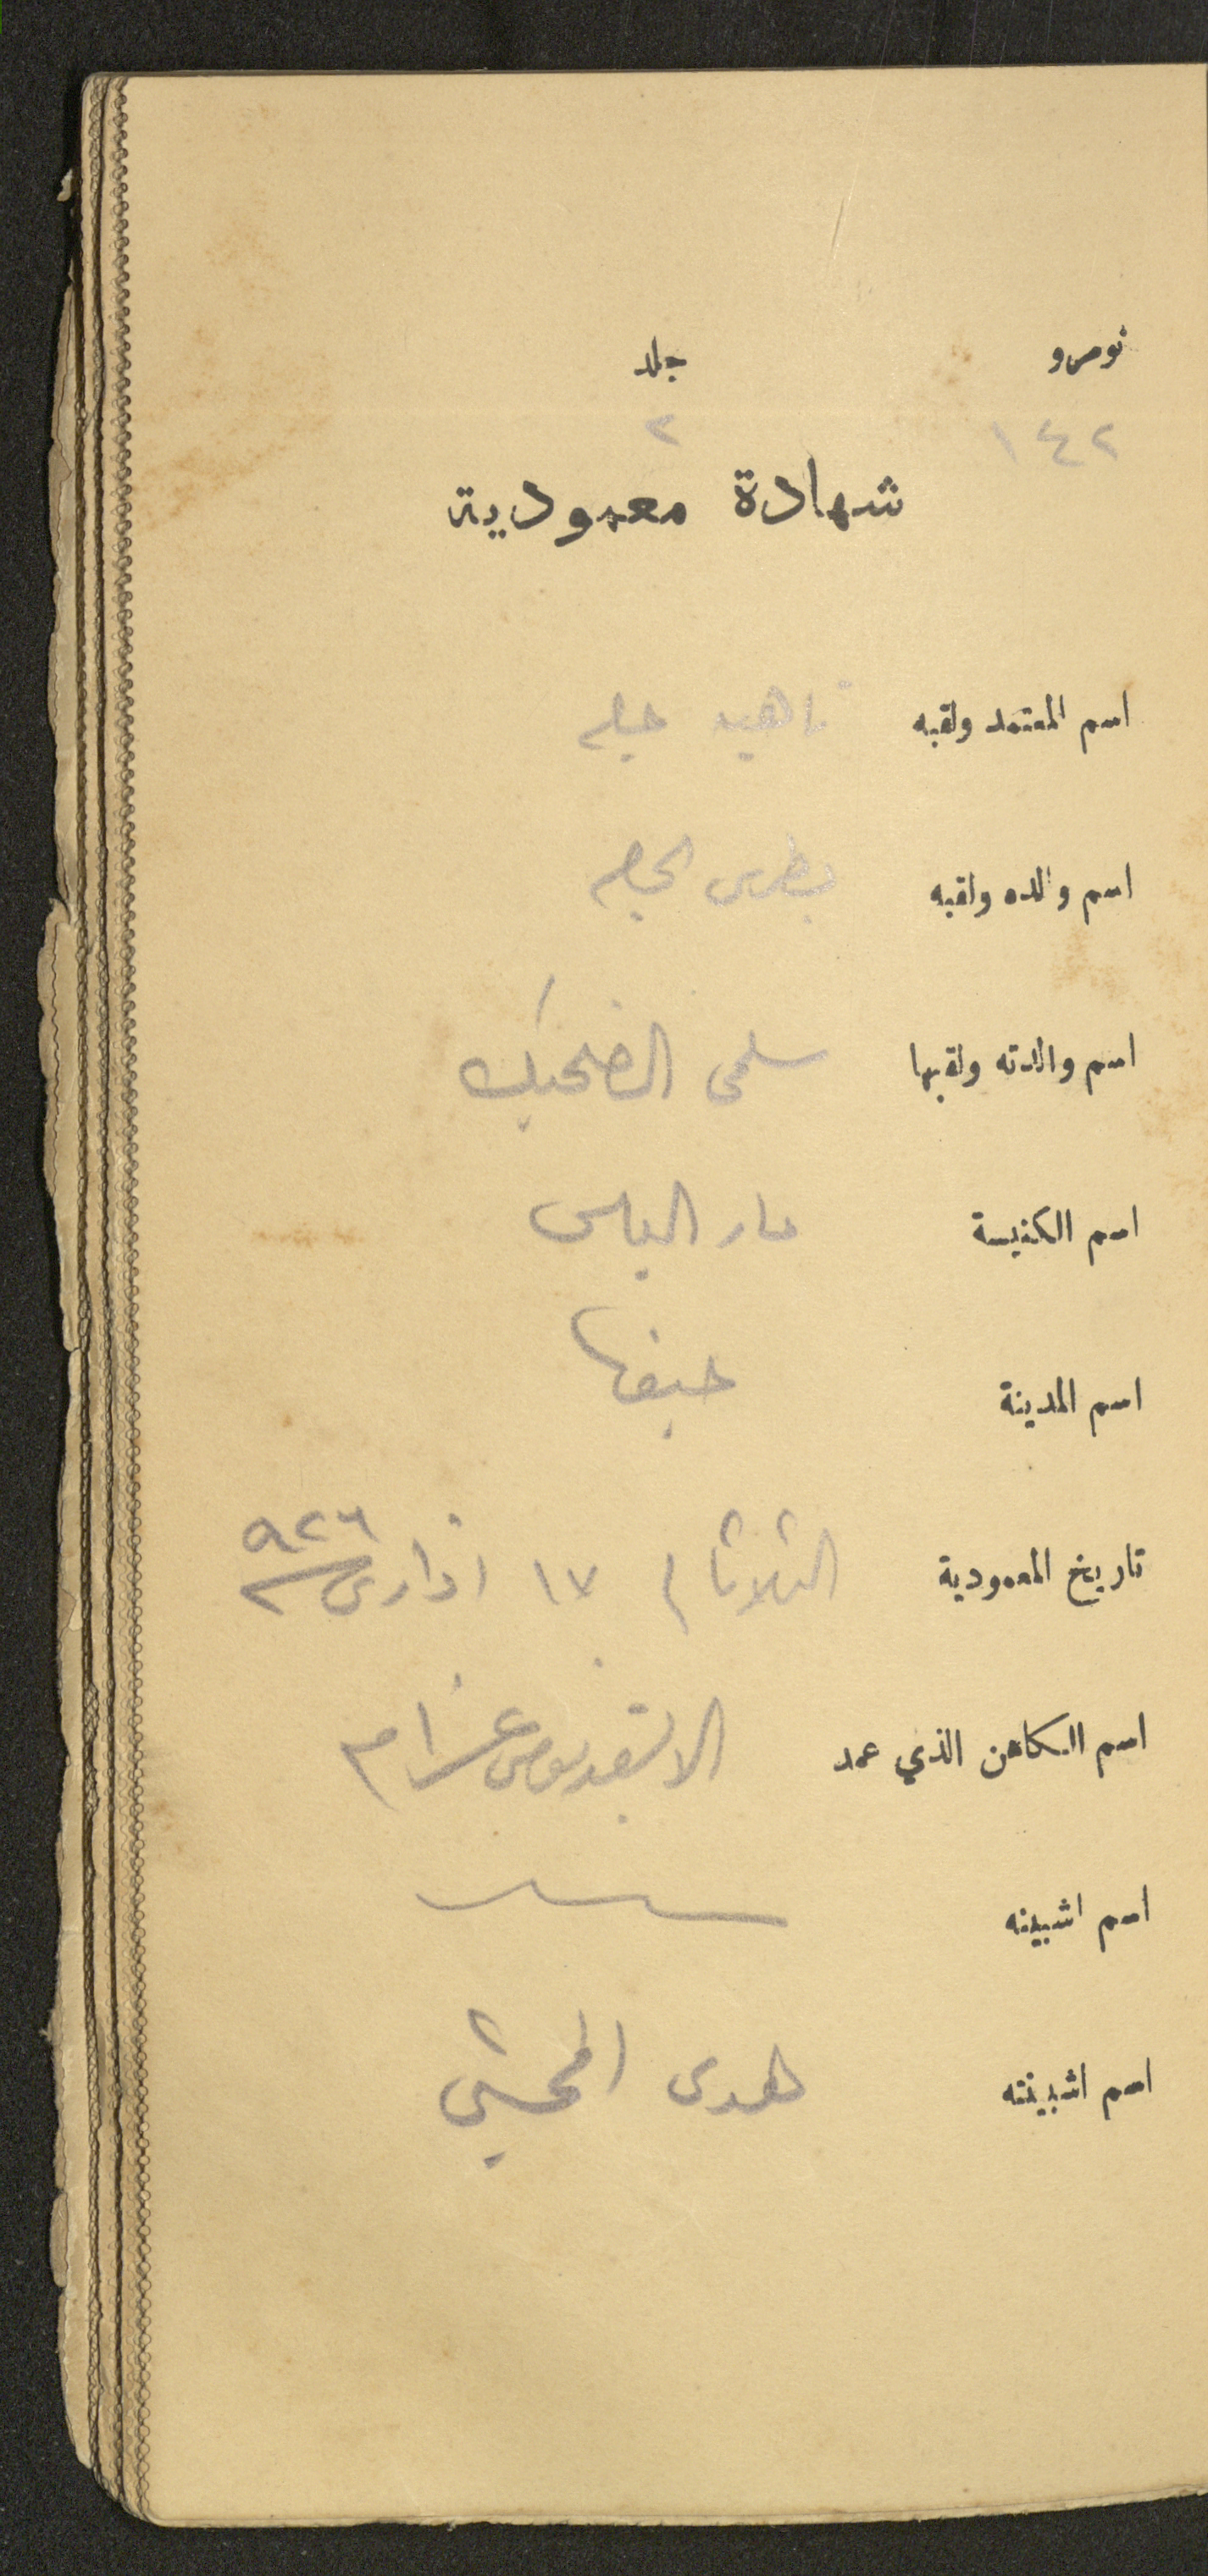 نومرو جلد
١٤٢ ٢
شهادة معمودية
اسم المعتمد ولقبه ناهيد
اسم والده ولقبه بطرس
اسم والدته ولقبها سلمى الضحيك
اسم الكنيسة مار الياس
اسم المدينة حيفا
تاريخ المعمودية الثلاثاء ١٧ اذار سنة ٩٢٦
اسم الكاهن الذي عمد
اسم اشبينه
اسم اشبينته هدى